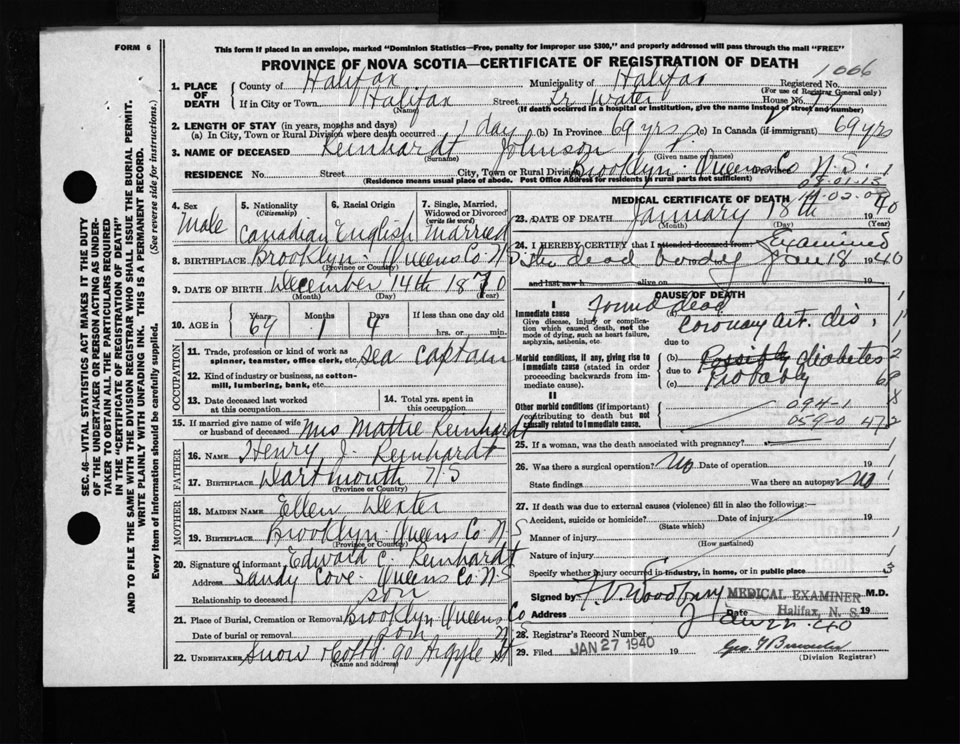 FORM 6
This form if placed in an envelope, marked "Dominion Statistics—Free, penalty for improper use $300," and properly addressed will pass through the mail "FREE"
PROVINCE OF NOVA SCOTIA—CERTIFICATE OF REGISTRATION OF DEATH
1006
1. PLACE OF DEATH County of Halifax Municipality of Halifax Registered No.
(For use of Registrar General only)
If in City or Town Halifax Street Lr Water House No.
(Name) (If death occurred in a hospital or institution, give the name instead of street and number)
2. LENGTH OF STAY (in years, months and days)
(a) In City, Town or Rural Division where death occurred 1 day (b) In Province 69 yrs (c) In Canada (if immigrant) 69 yrs
3. NAME OF DECEASED Reinhardt Johnson
(Surname) (Given name or names)
RESIDENCE No. Street City, Town or Rural Division Brooklyn Queens Co N.S.
(Residence means usual place of abode. Post Office Address for residents in rural parts not sufficient)
4. Sex Male
5. Nationality (Citizenship) Canadian
6. Racial Origin English
7. Single, Married, Widowed or Divorced (write the word) Married
8. BIRTHPLACE Brooklyn Queens Co. N S
(Province or Country)
9. DATE OF BIRTH December 14th 1870
(Month) (Day) (Year)
10. AGE in Years 69 Months 1 Days 4 If less than one day old
hrs. or min.
OCCUPATION
11. Trade, profession or kind of work as spinner, teamster, office clerk, etc. Sea Captain
12. Kind of industry or business, as cotton-mill, lumbering, bank, etc.
13. Date deceased last worked at this occupation
14. Total yrs. spent in this occupation
15. If married give name of wife or husband of deceased Mrs Mattie Reinhardt
FATHER
16. Name Henry J. Reinhardt
17. BIRTHPLACE Dartmouth N S
(Province or Country)
MOTHER
18. MAIDEN NAME Ellen Dexter
19. BIRTHPLACE Brooklyn Queens Co N S
(Province or Country)
20. Signature of informant Edward C. Reinhardt
Address Sandy Cove Queens Co N S
Relationship to deceased son
21. Place of Burial, Cremation or Removal Brooklyn Queens Co
N S
Date of burial or removal
22. UNDERTAKER Snow & Co Ltd 90 Argyle St
(Name and address)
MEDICAL CERTIFICATE OF DEATH
23. DATE OF DEATH January 18th 1940
(Month) (Day)
24. I HEREBY CERTIFY that I attended deceased from: Examined
the dead body Jan 18 1940
and last saw h alive on 19
CAUSE OF DEATH
I
Immediate cause Found dead
Give disease, injury or complication which caused death, not the mode of dying, such as heart failure, asphyxia, asthenia, etc.
Coronary art. dis.
due to
Morbid conditions, if any, giving rise to immediate cause (stated in order proceeding backwards from immediate cause).
(b) Possibly diabetes
due to
(c) Probably
II
Other morbid conditions (if important) contributing to death but not causally related to immediate cause.
094-1
059-0
25. If a woman, was the death associated with pregnancy?
26. Was there a surgical operation? No Date of operation 19
State findings Was there an autopsy? No
27. If death was due to external causes (violence) fill in also the following:
Accident, suicide or homicide? Date of injury 19
(State which)
Manner of injury
(How sustained)
Nature of injury
Specify whether injury occurred in industry, in home, or in public place
Signed by F. V. Woodbury MEDICAL EXAMINER M.D.
Address Date Halifax, N. S. 19
28. Registrar's Record Number
29. Filed JAN 27 1940 19
(Division Registrar)
SEC. 46—VITAL STATISTICS ACT MAKES IT THE DUTY OF THE UNDERTAKER OR PERSON ACTING AS UNDERTAKER TO OBTAIN ALL THE PARTICULARS REQUIRED IN THE "CERTIFICATE OF REGISTRATION OF DEATH" AND TO FILE THE SAME WITH THE DIVISION REGISTRAR WHO SHALL ISSUE THE BURIAL PERMIT.
WRITE PLAINLY WITH UNFADING INK. THIS IS A PERMANENT RECORD.
Every item of information should be carefully supplied. (See reverse side for instructions.)